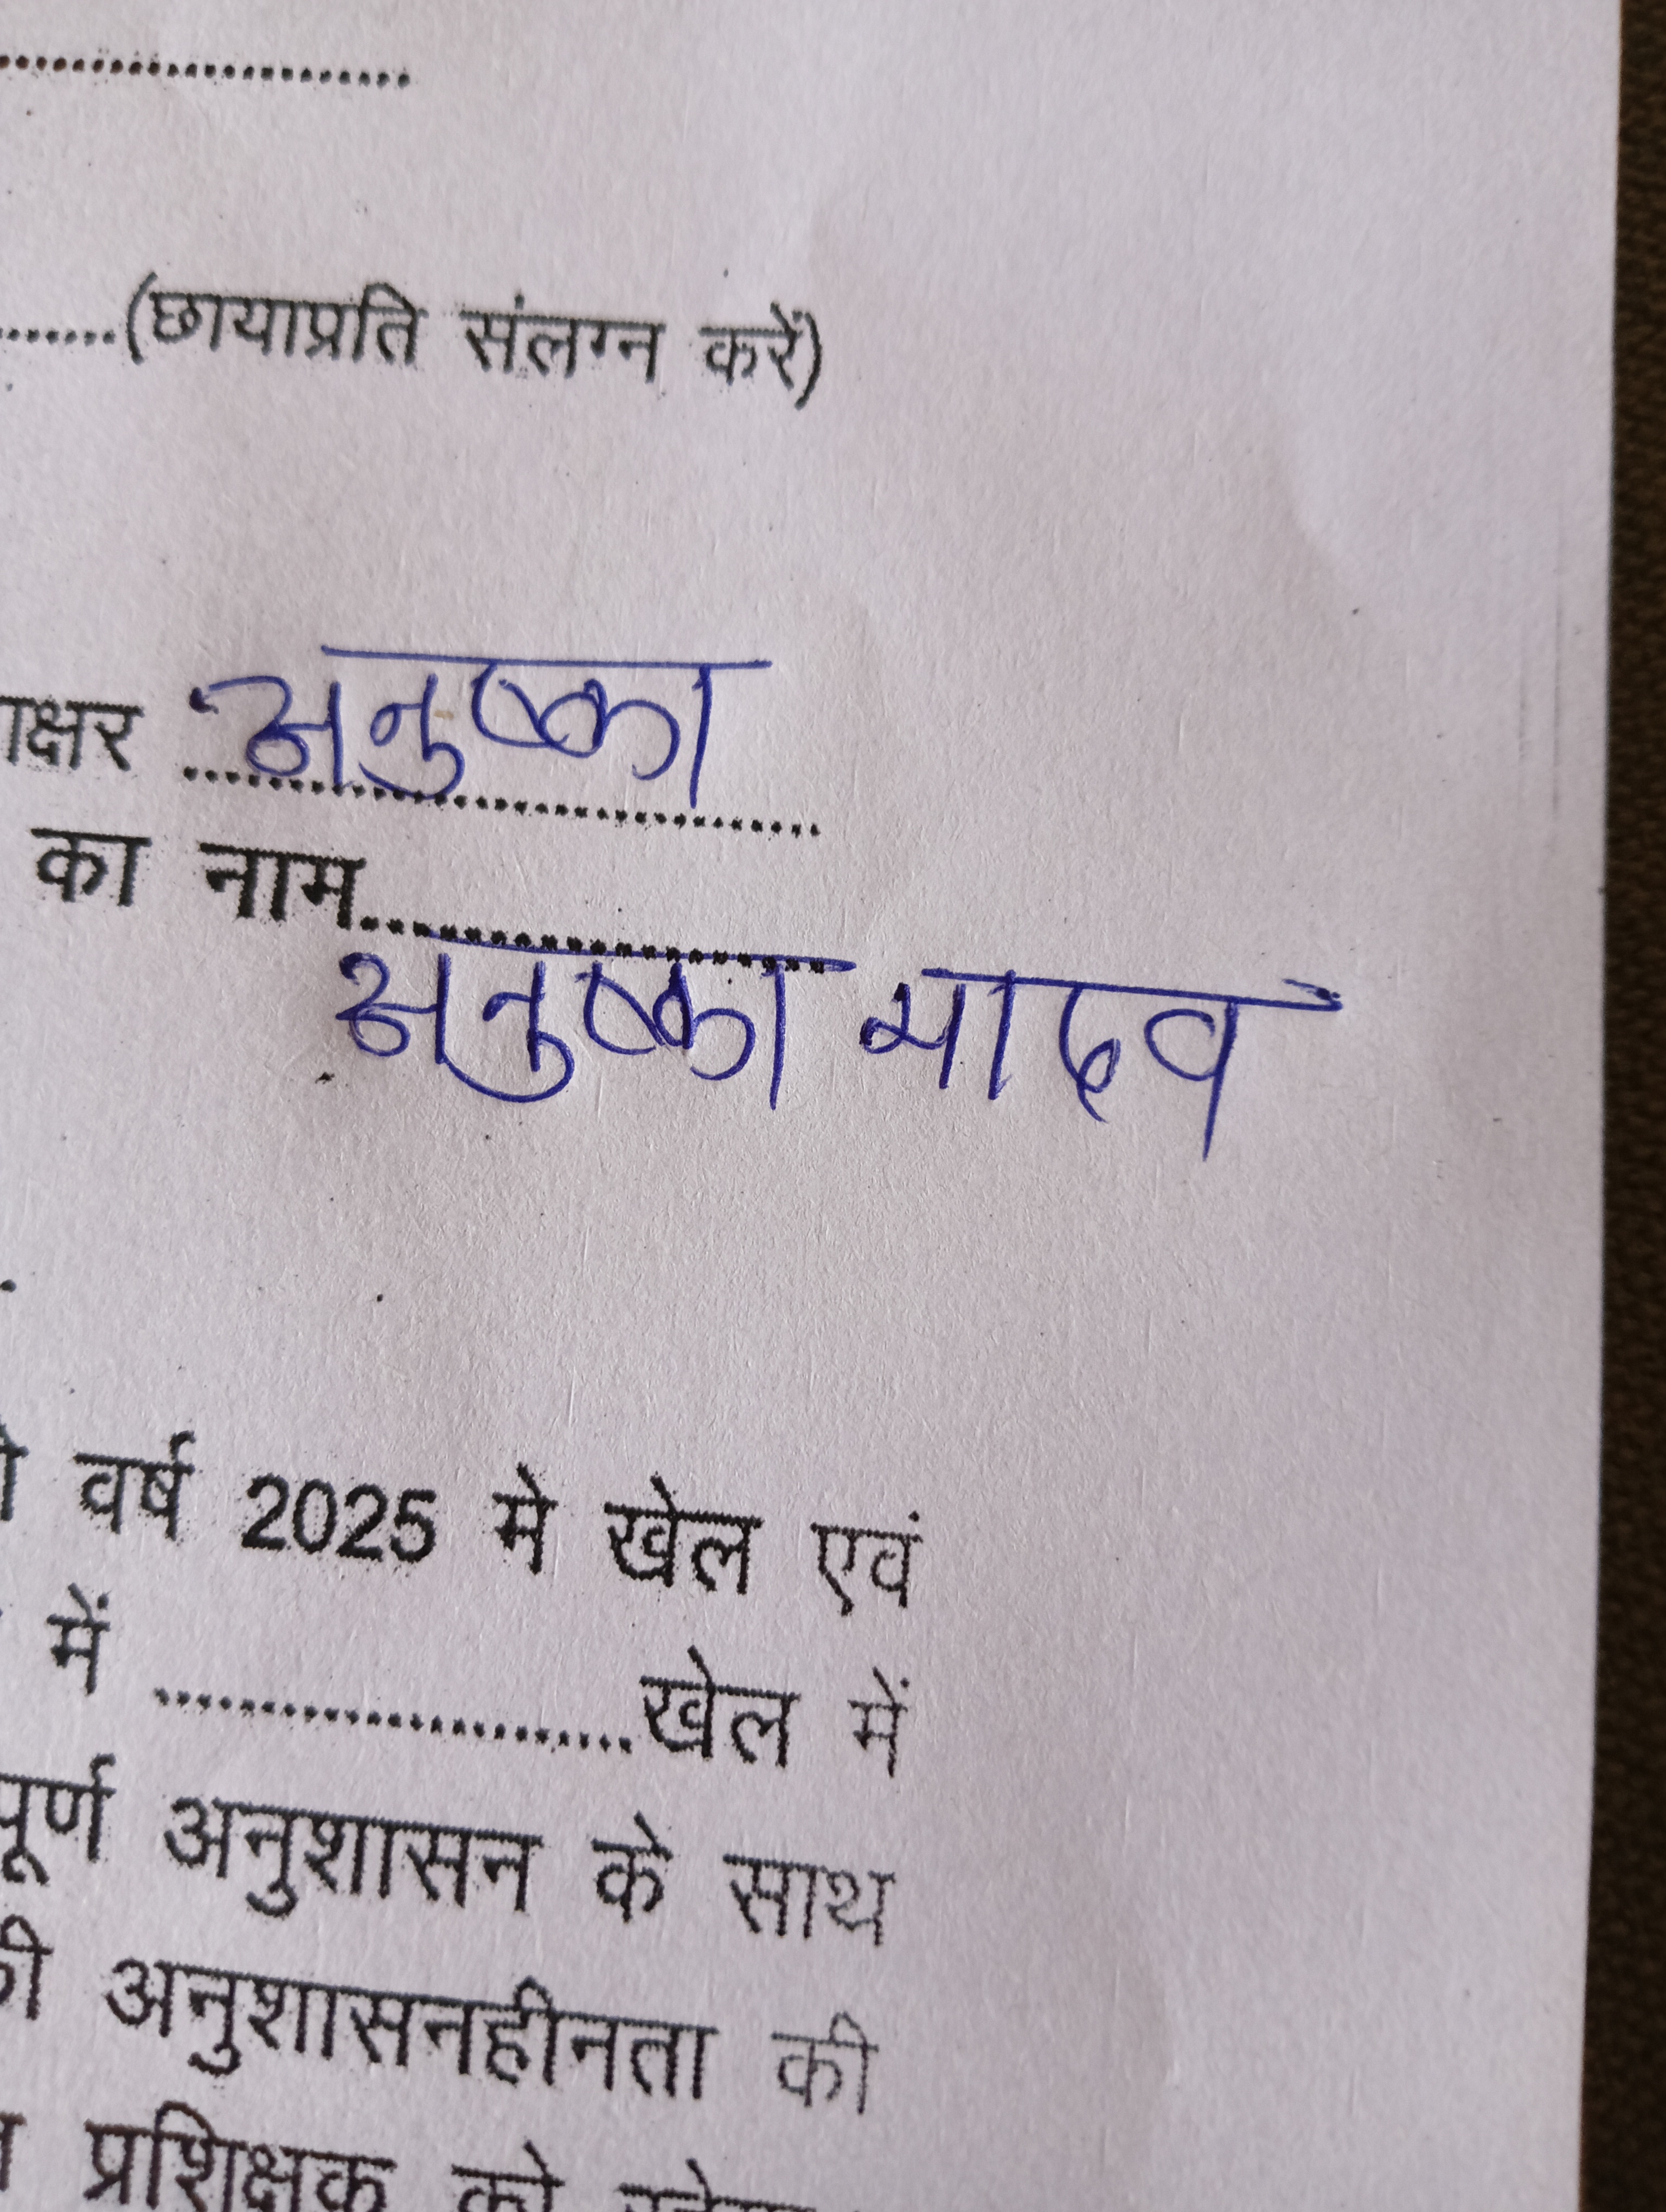 ........................................
.......(छायाप्रति संलग्न करें)
ाक्षर ........................................
अनुष्का
का नाम........................................
अनुष्का यादव
वर्ष 2025 मे खेल एवं
में ..............................खेल में
पूर्ण अनुशासन के साथ
की अनुशासनहीनता की
प्रशिक्षक को